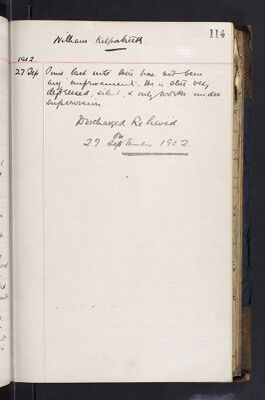 114
William Kilpatrick
1912
27 Sep. Since last note there has not been
any improvement. He is still very
depressed, silent, & only works under
supervision
Discharged Relieved
On
27 September 1902